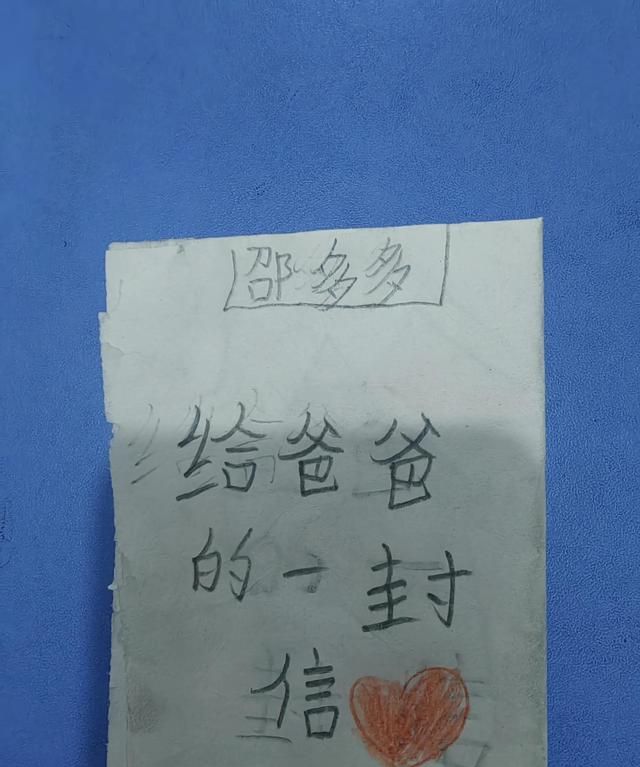 邵多多
给爸爸
的一封
信